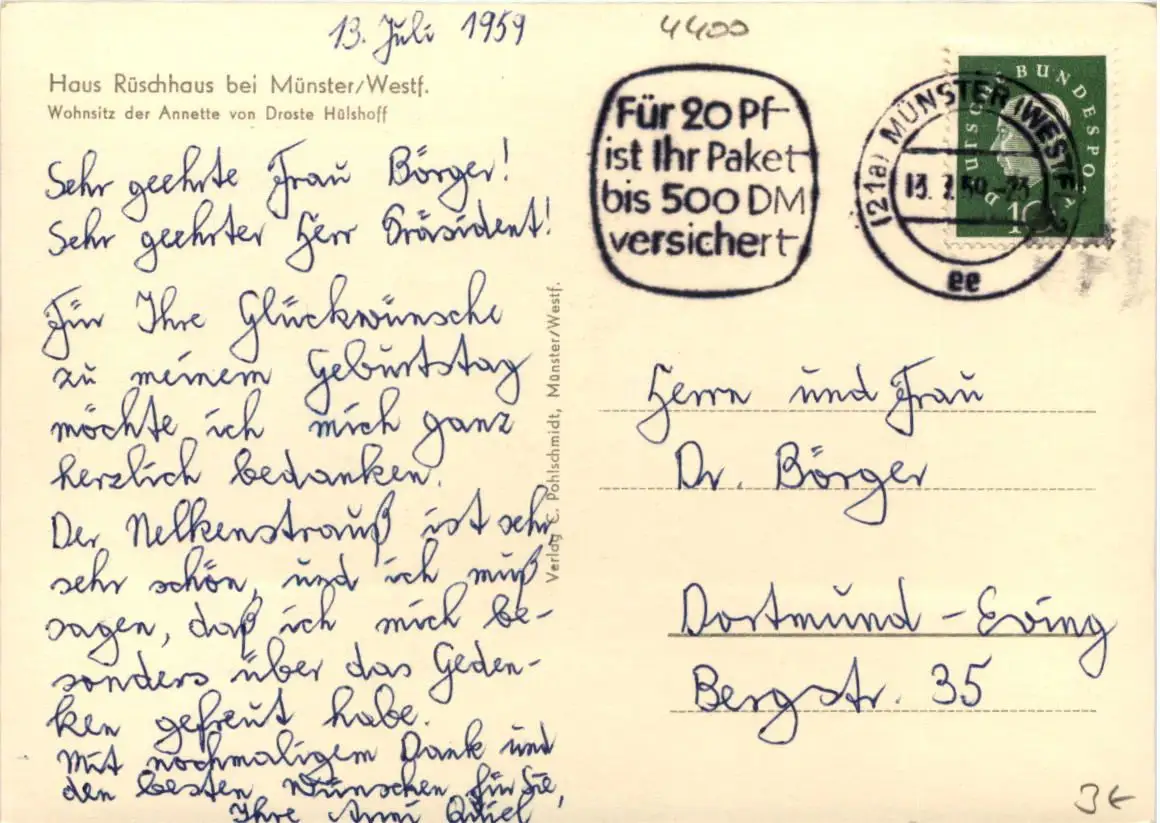 13. Juli 1959
4400
Haus Rüschhaus bei Münster/Westf.
Wohnsitz der Annette von Droste Hülshoff
Sehr geehrte Frau Börger!
Sehr geehrter Herr Präsident!
Für Ihre Glückwünsche
zu meinem Geburtstag
möchte ich mich ganz
herzlich bedanken.
Der Nelkenstrauß ist sehr,
sehr schön, und ich muß
sagen, daß ich mich be-
sonders über das Geden-
ken gefreut habe.
Mit nochmaligem Dank und
den besten Wünschen für Sie,
Ihre
Verlag C. Pohlschmidt, Münster/Westf.
Für 20 Pf
ist Ihr Paket
bis 500 DM
versichert
(21a) MÜNSTER (WESTF)
13. 7. 59
ee
DEUTSCHE BUNDESPOST
10
Herrn und Frau
Dr. Börger
Dortmund - Eving
Bergstr. 35
3 €